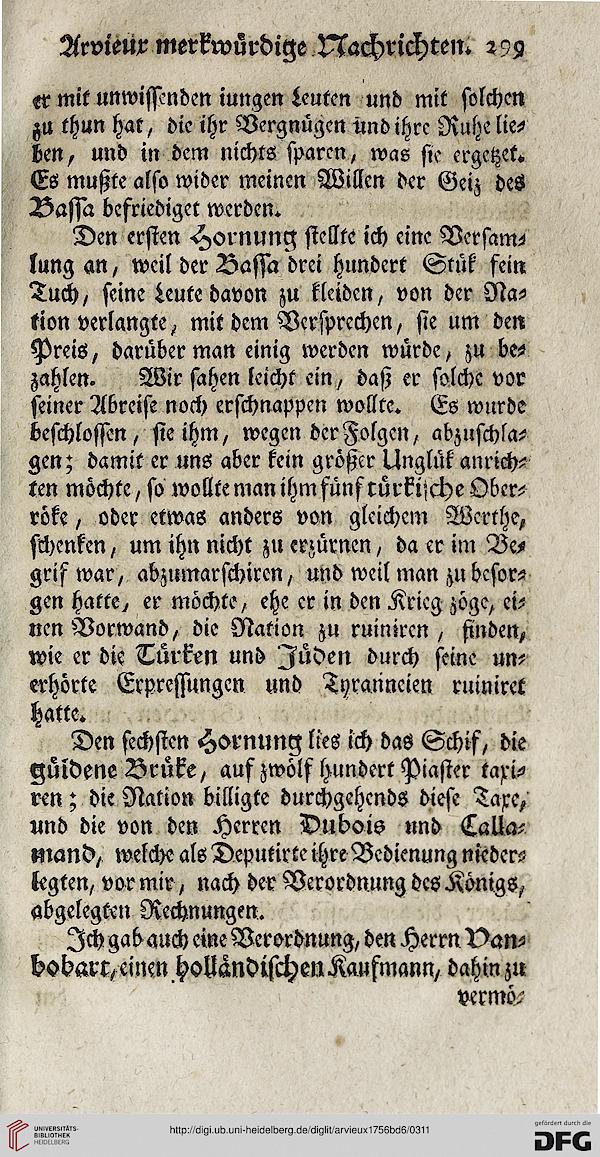 Arvieux merkwürdige Nachrichten. 299
er mit unwissenden iungen Leuten und mit solchen
zu thun hat, die ihr Vergnügen und ihre Ruhe lie⸗
ben, und in dem nichts sparen, was sie ergetzet.
Es mußte also wider meinen Willen der Geiz des
Bassa befriediget werden.
Den ersten Hornung stellte ich eine Versam⸗
lung an, weil der Bassa drei hundert Stük fein
Tuch, seine Leute davon zu kleiden, von der Na⸗
tion verlangte, mit dem Versprechen, sie um den
Preis, darüber man einig werden würde, zu be⸗
zahlen. Wir sahen leicht ein, daß er solche vor
seiner Abreise noch erschnappen wollte. Es wurde
beschlossen, sie ihm, wegen der Folgen, abzuschla⸗
gen; damit er uns aber kein größer Unglük anrich⸗
ten möchte, so wollte man ihm fünf türkische Ober⸗
röke, oder etwas anders von gleichem Werthe,
schenken, um ihn nicht zu erzürnen, da er im Be⸗
grif war, abzumarschiren, und weil man zu besor⸗
gen hatte, er möchte, ehe er in den Krieg zöge, ei⸗
nen Vorwand, die Nation zu ruiniren, finden,
wie er die Türken und Jüden durch seine un⸗
erhörte Erpressungen und Tyranneien ruiniret
hatte.
Den sechsten Hornung lies ich das Schif, die
güldene Brüke, auf zwölf hundert Piaster taxi⸗
ren; die Nation billigte durchgehends diese Taxe,
und die von den Herren Dubois und Calla⸗
mand, welche als Deputirte ihre Bedienung nieder⸗
legten, vor mir, nach der Verordnung des Königs,
abgelegten Rechnungen.
Ich gab auch eine Verordnung, den Herrn Van⸗
bobart, einen holländischen Kaufmann, dahin zu
vermö⸗
UNIVERSITÄTS-
BIBLIOTHEK
HEIDELBERG
http://digi.ub.uni-heidelberg.de/diglit/arvieux1756bd6/0311
gefördert durch die
DFG